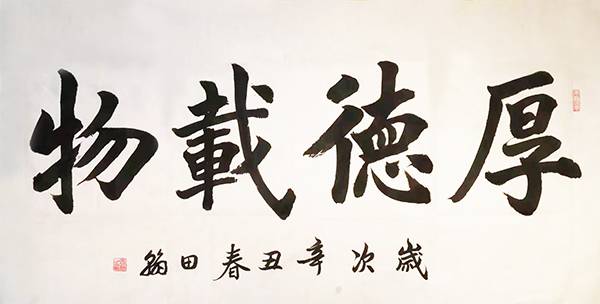 厚德載物
歲次辛丑春田